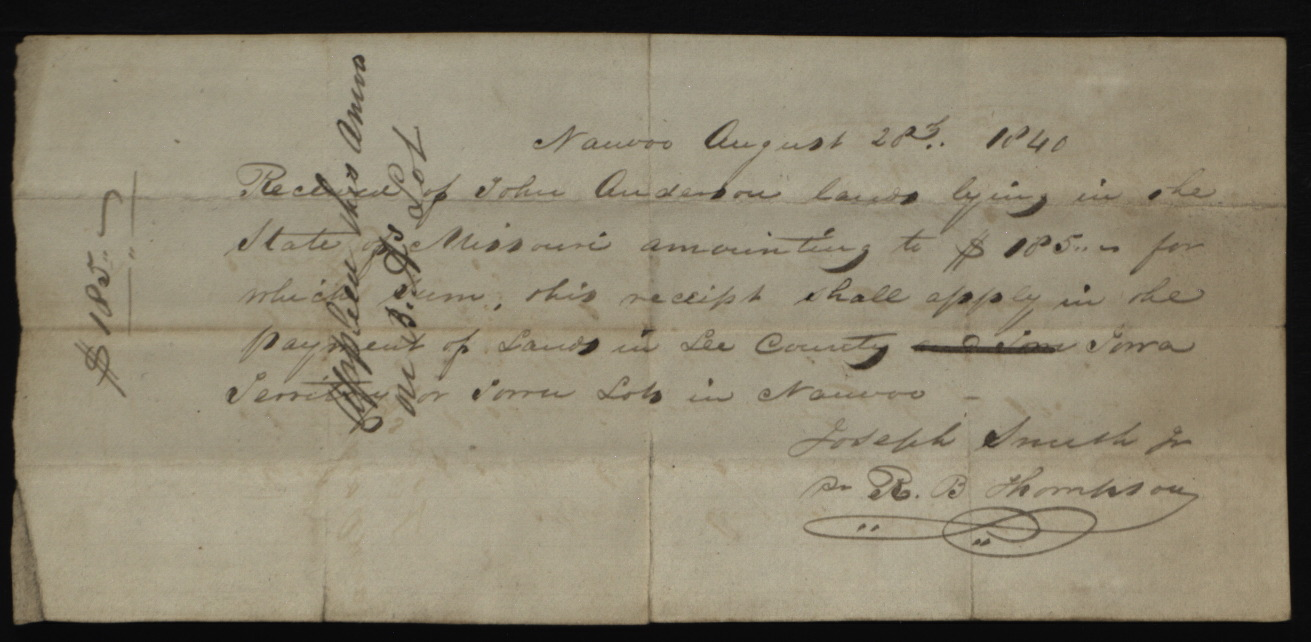 Nauvoo August 28th.. 1840
Received of John Anderson lands lying in the
State of Missouri amounting to $ 185.. for
which sum, this receipt shall apply in the
payment of Lands in Lee County Iowa
Territory or Town Lots in Nauvoo –
Joseph Smith Jr
pr R. B Thompson
$ 185..
Applied this Amo
on B. Lot